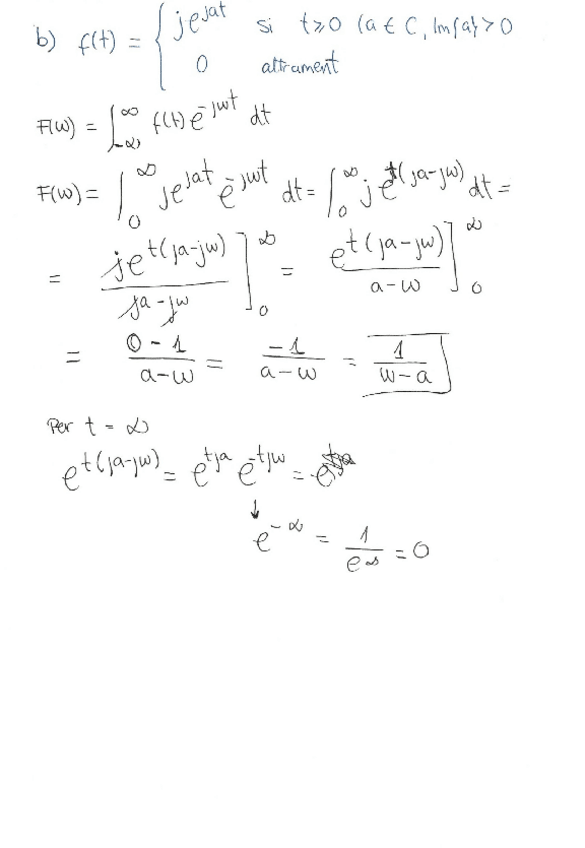 b) f(t) = { je^{jat} si t≥0 (a ∈ C, Im{a}>0
0 altrament
F(w) = ∫_{-∞}^{∞} f(t) e^{-jwt} dt
F(w) = ∫_0^∞ je^{jat} e^{-jwt} dt = ∫_0^∞ j e^{t(ja-jw)} dt =
= je^{t(ja-jw)} / (ja-jw) ]_0^∞ = e^{t(ja-jw)} / (a-w) ]_0^∞
= (0-1)/(a-w) = -1/(a-w) = 1/(w-a)
Per t = ∞
e^{t(ja-jw)} = e^{tja} e^{-tjw} =
↓
e^{-∞} = 1/e^∞ = 0